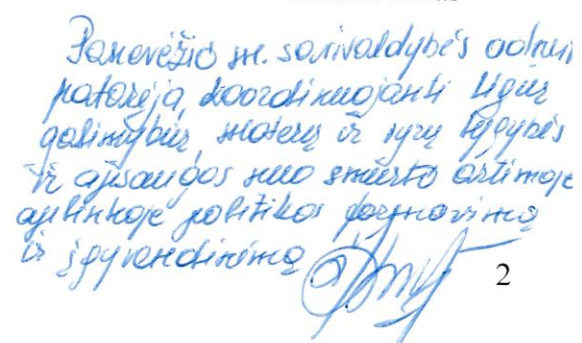 Panevėžio m. savivaldybės admin
patarėja, koordinuojanti lygių
galimybių, moterų ir vyrų lygybės
ir apsaugos nuo smurto artimoje
aplinkoje politikos formavimą
ir įgyvendinimą
2